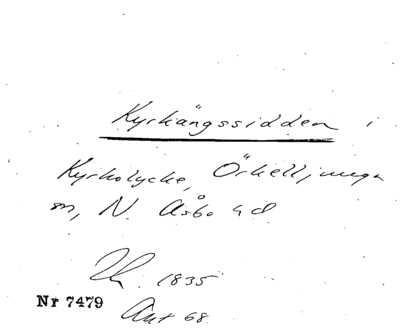 Kyrkängssidden i
Kyrkolycke, Örkelljunga
sn, N. Åsbo hd
Uk. 1835
Nr 7479
Akt 68